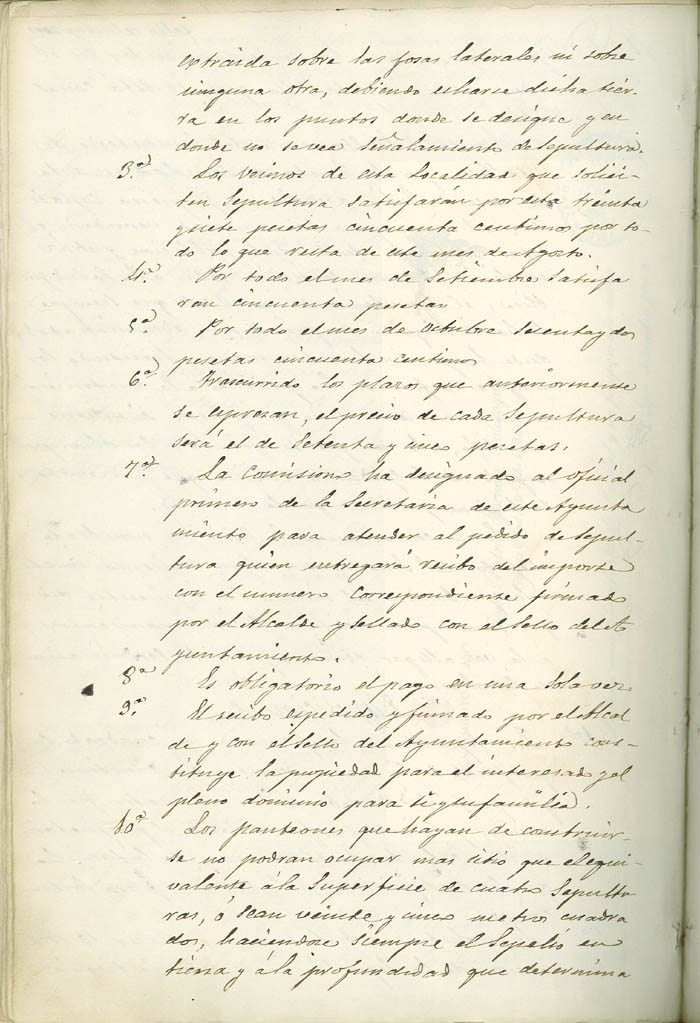 extraida sobre las fosas laterales ni sobre
ninguna otra, debiendo echarse dicha tier-
ra en los puntos donde se designe y en
donde no se vea señalamiento de Sepultura.
3.ª Los vecinos de esta Localidad que solici-
ten Sepultura satisfarán por esta treinta
y siete pesetas cincuenta centimos por to-
do lo que resta de este mes de Agosto.
4.ª Por todo el mes de Setiembre satisfa
ran cincuenta pesetas
5.ª Por todo el mes de octubre sesenta y dos
pesetas cincuenta centimos
6.ª Trascurrido los plazos que anteriormente
se espresan, el precio de cada Sepultura
será el de Setenta y cinco pesetas.
7.ª La Comision ha designado al oficial
primero de la Secretaria de este Ayunta
miento para atender al pedido de Sepul-
tura quien entregará recibo del importe
con el numero correspondiente firmado
por el Alcalde y Sellado con el Sello del A
yuntamiento.
8ª Es obligatorio el pago en una sola vez
9.ª El recibo espedido y firmado por el Alcal
de y con el Sello del Ayuntamiento cons-
tituye la propiedad para el interesado y el
pleno dominio para si y su familia.
10ª Los panteones que hayan de construir-
se no podran ocupar mas sitio que el equi-
valente á la Superficie de cuatro Sepultu
ras, ó sean veinte y cinco metros cuadra
dos, haciendose siempre el Sepelio en
tierra y á la profundidad que determina